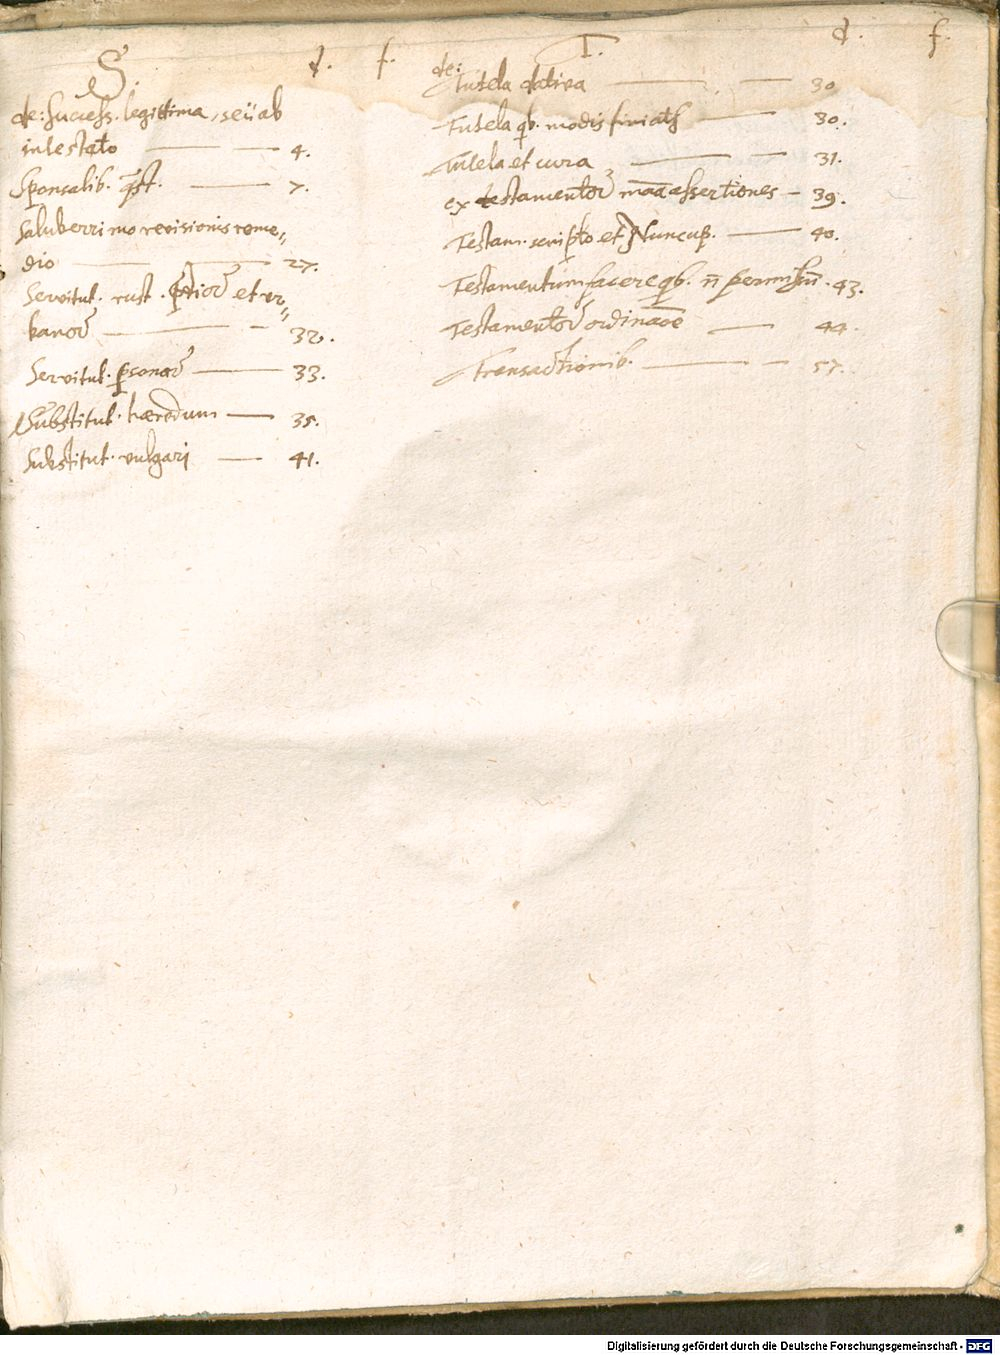 S. d. f.
de: Success. legittima, seü ab
intestato 4.
Sponsalib. qst. 7.
Saluberrimo revisionis reme„
dio 27.
Servitut. rust. et ur„
banor 32.
Servitut. psonar 33.
Substitut. hæredum 35.
Substitut. vulgari 41.
T. d. f.
de: Tutela dativa 30
Tutela qb. modis finiatʃ 30.
Tutela et cura 31.
ex testamentor assertiones 39.
Testam. scripto et Nuncup. 40.
Testamentum facere qb. n̄ 43.
Testamentor ordinacōe 44.
Transactionib. 57.
Digitalisierung gefördert durch die Deutsche Forschungsgemeinschaft - DFG